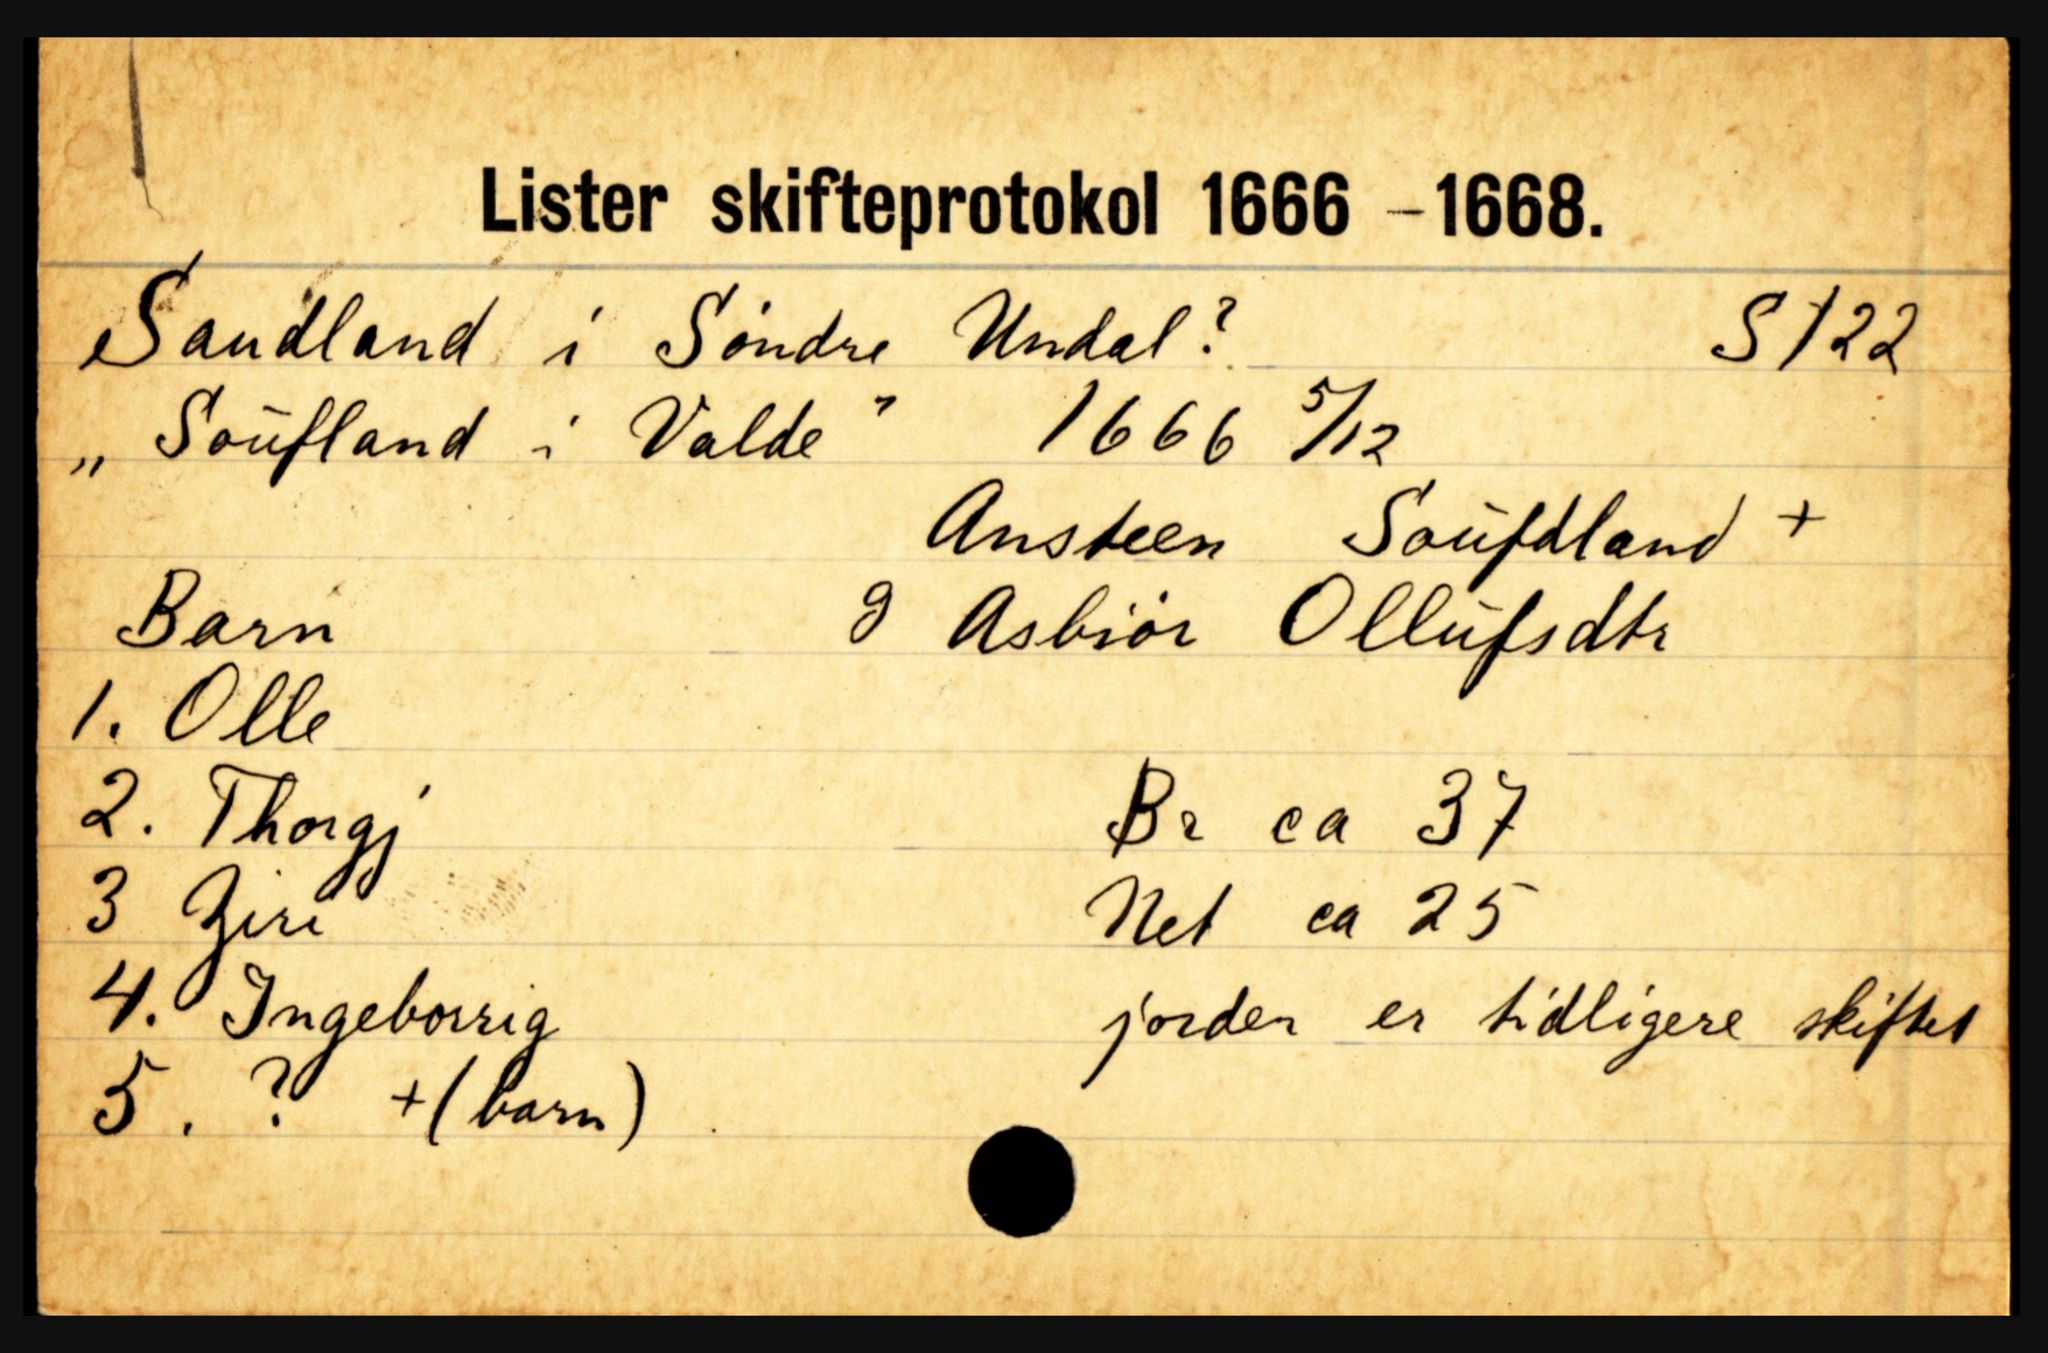 Lister skifteprotokol 1666 - 1668.
Saudland i Søndre Undal? S 122
„Soüfland i Valde" 1666 5/12
Ansteen Soüfdland +
Barn g Asbiør Ollüfsdtr
1. Olle
2. Thorgj Br ca 37
3 Ziri Net ca 25
4. Ingeborrig jorden er tidligere skiftet
5. ? + (barn)